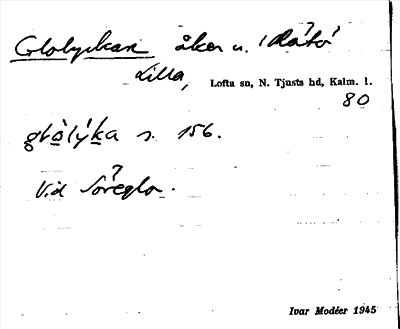 Glolyckan åker u. Råtö
Lilla, Lofta sn, N. Tjusts hd, Kalm. l.
80
s. 156.
Vid
Ivar Modéer 1945